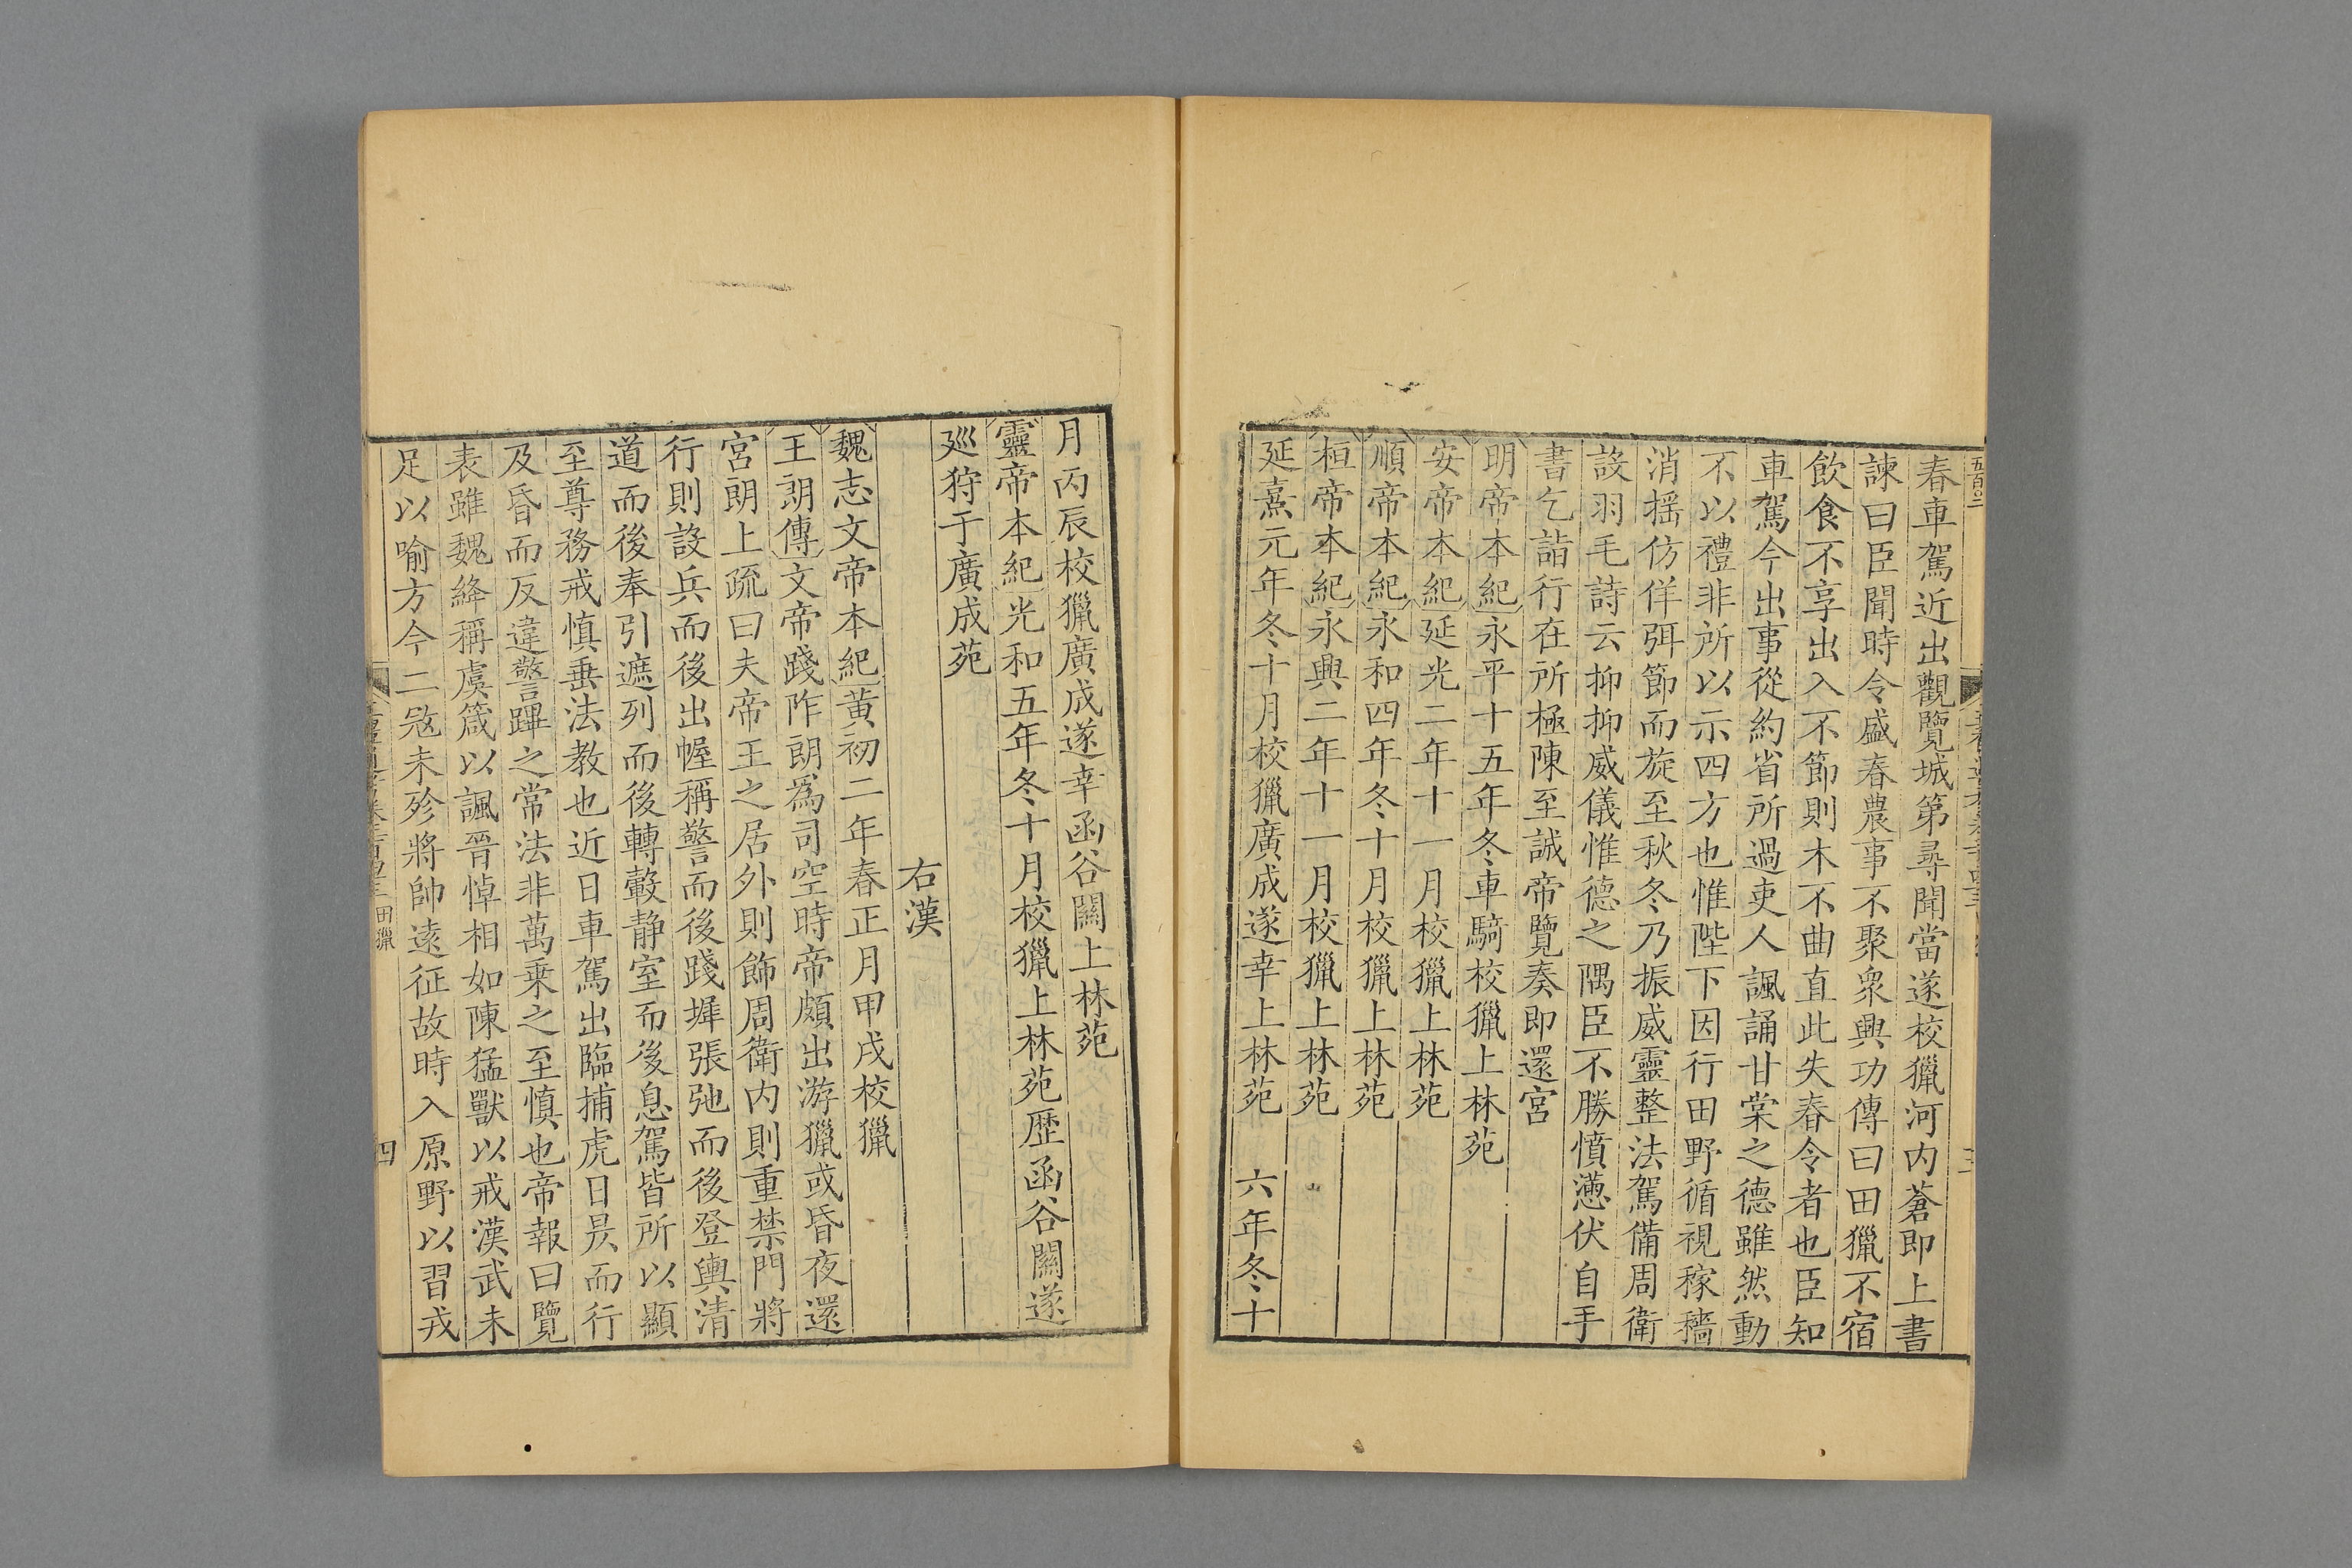 春車駕近出觀覽城第尋聞當遂校獵河内蒼即上書
諫曰臣聞時令盛春農事不聚衆興功傳曰田獵不宿
飲食不享出入不節則木不曲直此失春令者也臣知
車駕今出事從約省所過吏人諷誦甘棠之德雖然動
不以禮非所以示四方也惟陛下因行田野循視稼穡
消摇仿佯弭節而旋至秋冬乃振威靈整法駕備周衛
設羽毛詩云抑抑威儀惟德之隅臣不勝憤懣伏自手
書乞詣行在所極陳至誠帝覽奏即還宮
明帝本紀永平十五年冬車騎校獵上林苑
安帝本紀延光二年十一月校獵上林苑
順帝本紀永和四年冬十月校獵上林苑
桓帝本紀永興二年十一月校獵上林苑
延熹元年冬十月校獵廣成遂幸上林苑 六年冬十
月丙辰校獵廣成遂幸函谷關上林苑
靈帝本紀光和五年冬十月校獵上林苑歴函谷關遂
廵狩于廣成苑
右漢
魏志文帝本紀黄初二年春正月甲戌校獵
王朗傳文帝踐阼朗爲司空時帝頗出游獵或昏夜還
宮朗上疏曰夫帝王之居外則飾周衛内則重禁門將
行則設兵而後出幄稱警而後踐墀張弛而後登輿清
道而後奉引遮列而後轉轂静室而後息駕皆所以顯
至尊務戒慎垂法教也近日車駕出臨捕虎日昃而行
及昏而反違警蹕之常法非萬乗之至慎也帝報曰覽
表雖魏絳稱虞箴以諷晉悼相如陳猛獸以戒漢武未
足以喻方今二宼未殄將帥遠征故時入原野以習戎
田獵
四